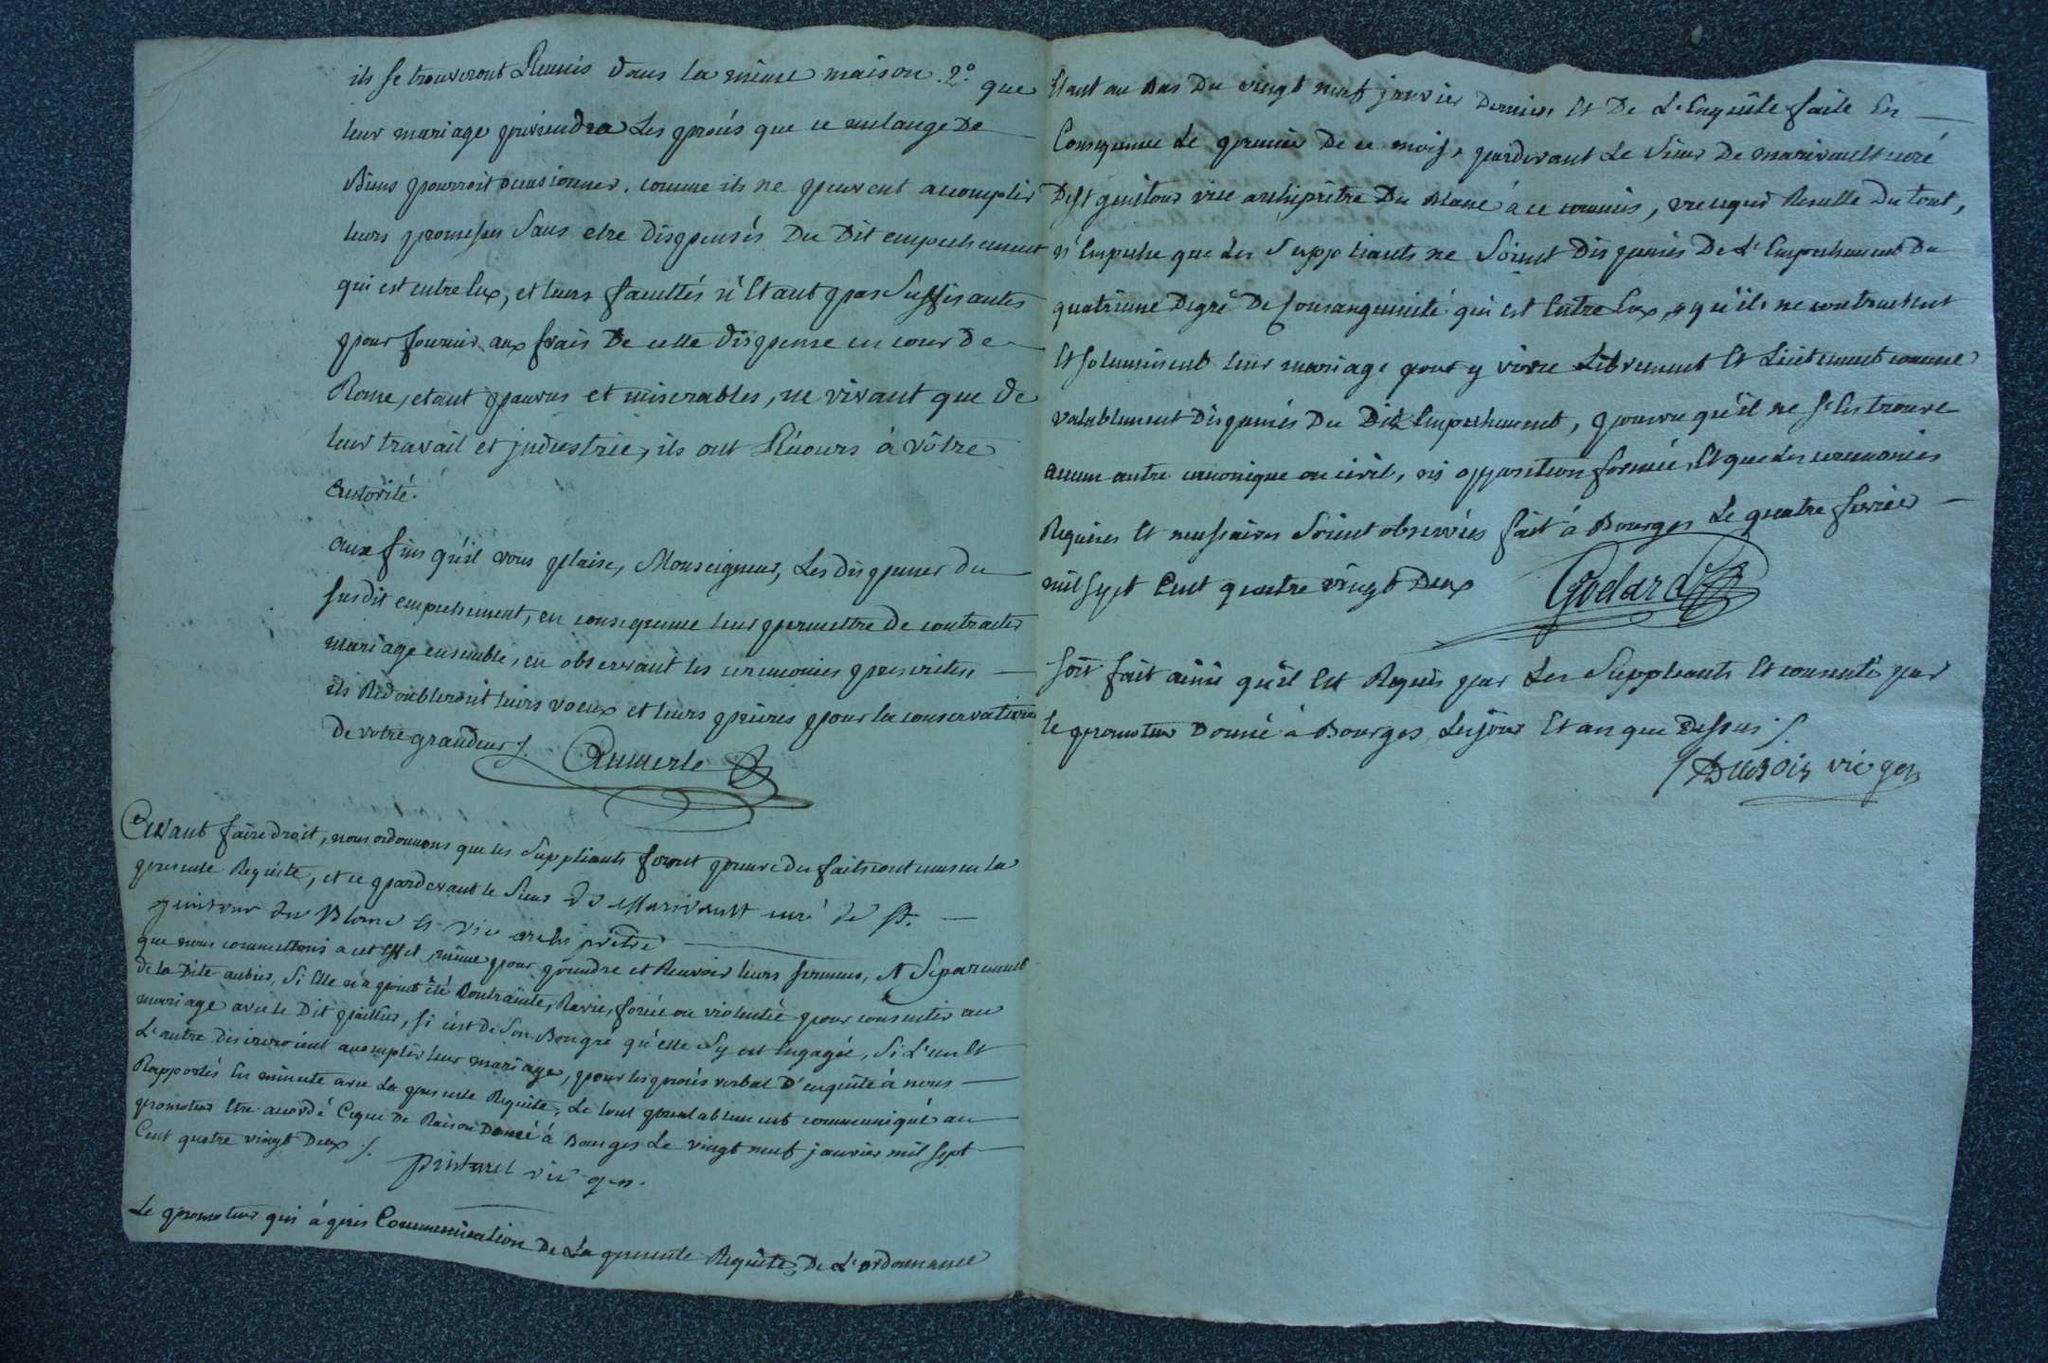 ils se trouveront Reunis dans la même maison. 2.° que
leur mariage préviendra les procés que ce melange de
Biens pourroit occasionner. comme ils ne peuvent accomplir
leurs promesses sans etre dispensés du Dit empechement
qui est entre Eux, et leurs facultés n'étant pas suffisantes
pour fournir aux frais de cette dispense en cour de
Rome, etant pauvres et miserables, ne vivant que de
leur travail et industrie, ils ont Récours à vôtre
autorité.
aux fins qu'il vous plaise, Monseigneur, Les dispenser du
susdit empechement, en consequence leur permettre de contracter
mariage ensemble, en observant les ceremonies prescrites
ils Redoubleront leurs voeux et leurs prieres pour la conservation
de votre grandeur ./. Aumerle
Avant faire droit, nous ordonnons que les Suppliants feront preuve des faits contenus en la
presente Requête, et ce pardevant le Sieur de Marivault curé de St.
genitour du Blanc et vice archiprêtre
que nous commettons a cet effet, même pour prendre et Recevoir leurs sermens, et Separement
de la Dite aubier, si Elle n'a point été Contrainte, Ravie, forcée ou violentée pour consentir au
mariage avec le Dit pailler, si c'est de son Bon gré qu'elle s'y est Engagée, si L'un Et
L'autre desireroient accomplir leur mariage, pour les procés verbal D'enquête à nous
Rapportés En minute avec La presente Requête, Le tout prealablement communiqué au
promoteur Etre accordé Ce que De Raison Donné à Bourges Le vingt neuf janvier mil sept
Cent quatre vingt Deux ./.
vic gen.
Le promoteur qui à pris Communication De La presente Requête, De L'ordonnance
Etant au Bas Du vingt neuf janvier Dernier, Et De L'Enquête faite En
Consequence Le premier De ce mois, pardevant Le Sieur De marivault curé
De St genitour vice archiprêtre Du Blanc à ce commis, vu ce qui Resulte Du tout,
n'Empeche que Les Suppliants ne soient Dispensés De L'Empechement Du
quatrieme Degré De Consanguinité qui est Entre Eux, & qu'ils ne contractent
Et solemnisent leur mariage pour y vivre Librement Et Licitement comme
valablement Dispensés Du Dit Empechement, pourvu qu'il ne s'En trouve
aucun autre canonique ou civil, ni opposition formée, Et que Les ceremonies
Requises Et necessaires Soient observées fait à Bourges Le quatre fevrier
mil sept Cent quatre vingt Deux Godard
Soit fait ainsi qu'il Est Requis par Les Suppliants Et consenti par
Le promoteur Donné à Bourges Les jour Et an que Dessus ./.
Dubois vic gen